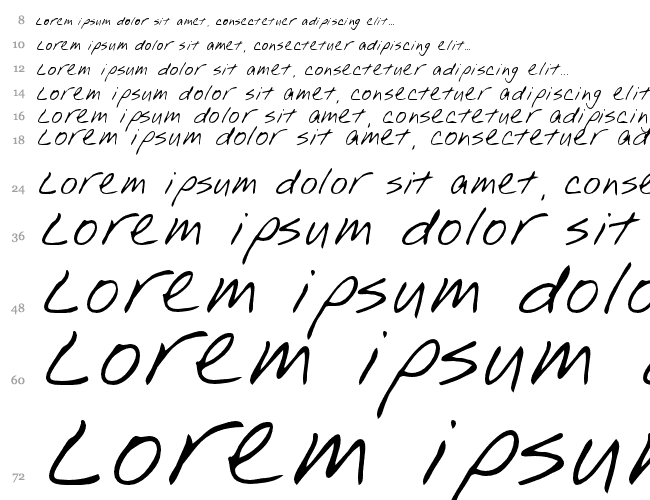 8 Lorem ipsum dolor sit amet, consectetuer adipiscing elit...
10 Lorem ipsum dolor sit amet, consectetuer adipiscing elit...
12 Lorem ipsum dolor sit amet, consectetuer adipiscing elit...
14 Lorem ipsum dolor sit amet, consectetuer adipiscing elit
16 Lorem ipsum dolor sit amet, consectetuer adipiscin
18 Lorem ipsum dolor sit amet, consectetuer ad
24 Lorem ipsum dolor sit amet, conse
36 Lorem ipsum dolor sit
48 Lorem ipsum dolo
60 Lorem ipsum
72 Lorem ipsu